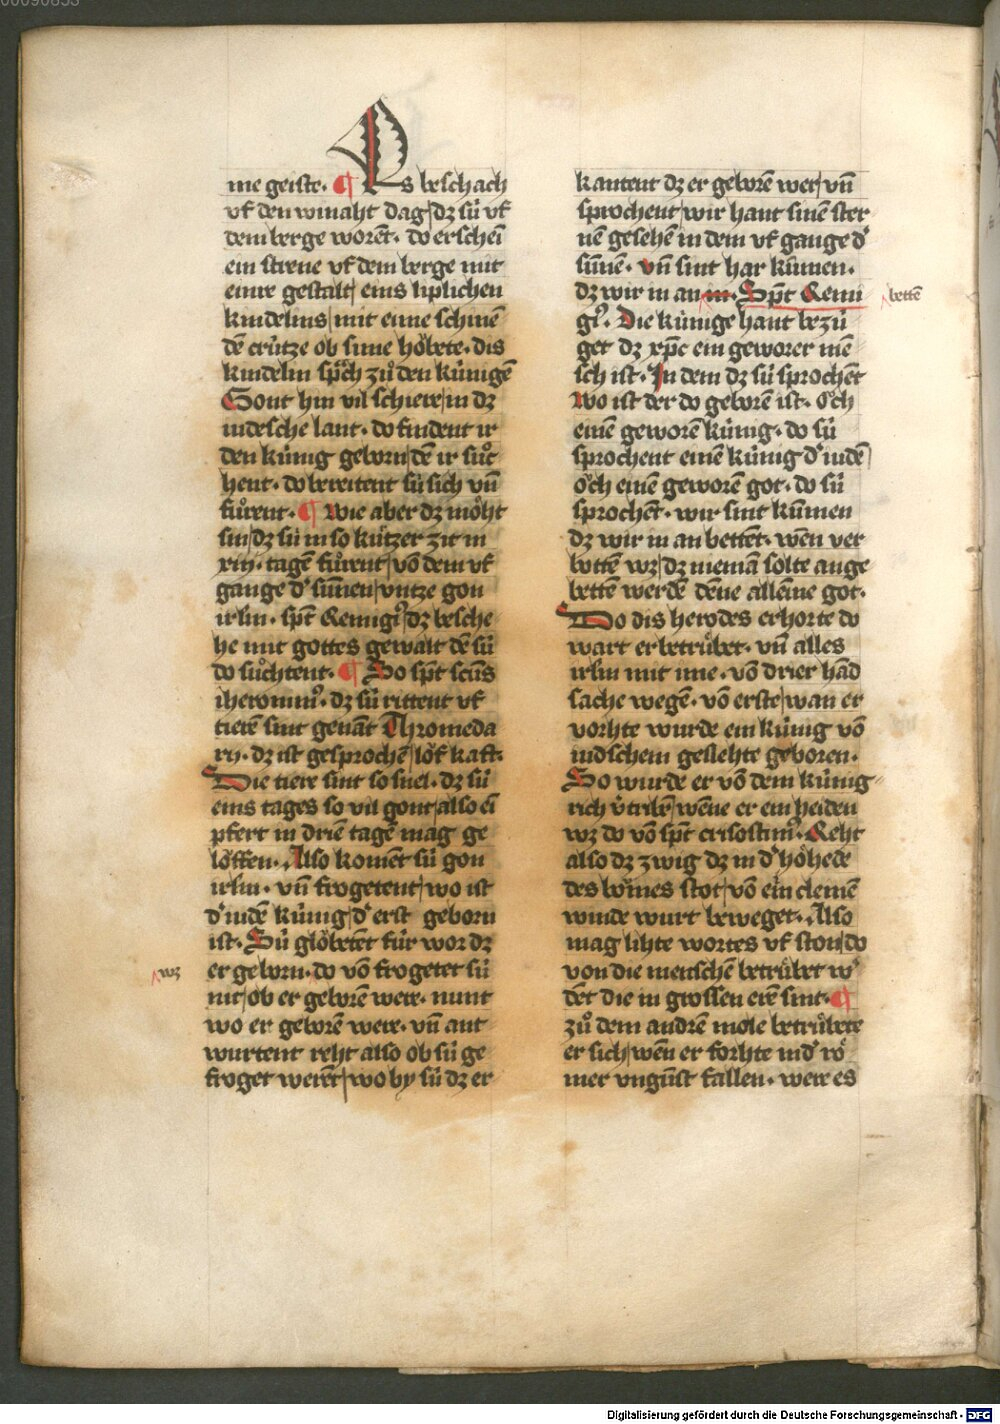 me geiste. ¶ Es beschach
vf den winaht dag dz sú vf
dem berge worēt. do erschei
ein sterne vf dem berge mit
eime gestalt eins liplichen
kindelins mit eime schinē
dē crútze ob sime hǒbete. dis
kindelin sp̄ch zů den kúnigē
Gont hin vil schiere in dz
iudesche lant. do findent ir
den kúnig geborn dē ir sůc
hent. do bereitent sú sich vn̄
fůrent. ¶ Wie aber dz mǒht
sin dz sú in so kůtzer zit in
xiij. tagē fůrent vō dem vf
gange dˀ sūnen vntze gon
irlm. sp̄t Remigiꝰ dz besche
he mit gottes gewalt dē sú
do sůchtent. ¶ So sp̄t scūs
iheronimꝰ. dz sú rittent vf
tierē sint genāt Thromeda
rij. dz ist gesprochē lǒf kaft.
Die tiere sint so snel. dz sú
eins tages so vil gont also ei
pfert in driē tagē mag ge
lǒffen. Also komēt sú gon
irlm. vn̄ frogetent wo ist
dˀ iudē kúnig dˀ erst geborn
ist. Sú glǒbetēt für wor dz
wz
er geborn. do vō frogetet sú
nit ob er geborē were. nunt
wo er geborē were. vn̄ ant
wurtent reht also ob sú ge
froget werēt wo by sú dz er
kantent dz er geborē wer vn̄
sprochent wir hant sinē ster
nē gesehē in dem vf gange dˀ
sūnē. vn̄ sint har kūmen.
dz wir in an m. Sp̄t Remi
bettē
gꝰ. Die kúnige hant bezú
get dz xp̄c ein geworer mē
sch ist. In dem dz sú sprochēt
wo ist der do geborē ist. ǒch
einē geworē kúnig. do sú
sprochent einē kúnig dˀ iudē
ǒch einē geworē got. do sú
sprochēt. wir sint kūmen
dz wir in an bettēt. wēn ver
bottē wz dz niemā solte ange
bettē werdē dēne alleine got.
Do dis herodes erhorte do
wart er betrůbet. vn̄ alles
irlm mit ime. vō drier hād
sache wegē. vō erste wan er
vorhte wurde ein kúnig vō
iudschem geslehte geboren.
So wurde er vō dem kúnig
rich v̄tribē wēne er ein heiden
wz do vō sp̄t crisostimꝰ. Reht
also dz zwig dz in dˀ hǒhede
des bǒmes stot vō ein clemē
winde wurt beweget. Also
mag lihte wortes vf ston do
von die menschē betrůbet wˀ
dēt die in grossen erē sint. ¶
zů dem andrē mole betrůbete
er sich wēn er forhte in dˀ rǒ
mer vngūst fallen. were es
Digitalisierung gefördert durch die Deutsche Forschungsgemeinschaft - DFG